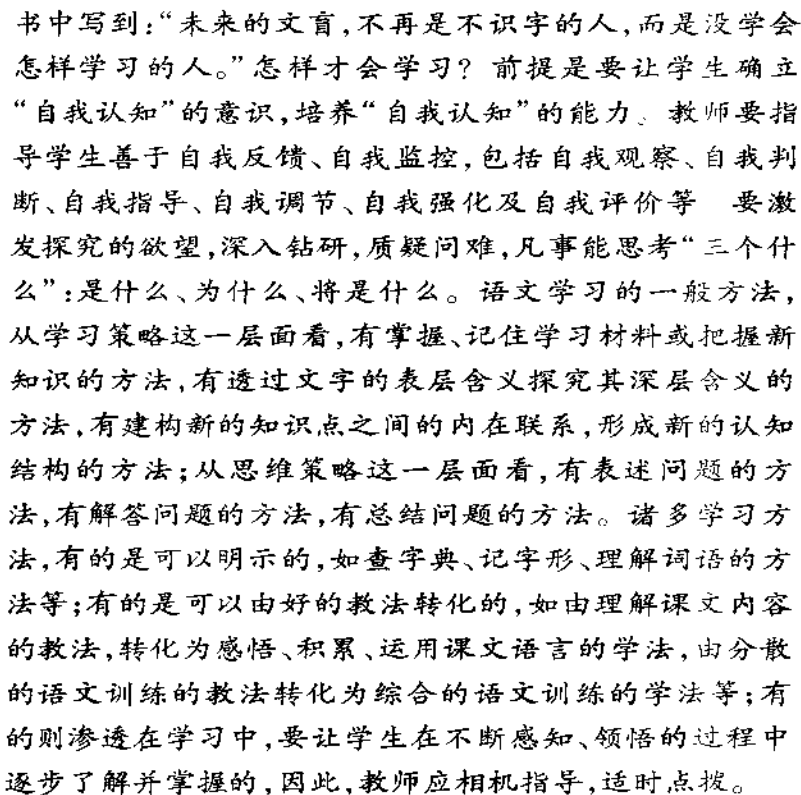 书中写到:“未来的文盲,不再是不识字的人,而是没学会
怎样学习的人。”怎样才会学习? 前提是要让学生确立
“自我认知”的意识,培养“自我认知”的能力。教师要指
导学生善于自我反馈、自我监控,包括自我观察、自我判
断、自我指导、自我调节、自我强化及自我评价等 要激
发探究的欲望,深入钻研,质疑问难,凡事能思考“三个什
么”:是什么、为什么、将是什么。语文学习的一般方法,
从学习策略这一层面看,有掌握、记住学习材料或把握新
知识的方法,有透过文字的表层含义探究其深层含义的
方法,有建构新的知识点之间的内在联系,形成新的认知
结构的方法;从思维策略这一层面看,有表述问题的方
法,有解答问题的方法,有总结问题的方法。诸多学习方
法,有的是可以明示的,如查字典、记字形、理解词语的方
法等;有的是可以由好的教法转化的,如由理解课文内容
的教法,转化为感悟、积累、运用课文语言的学法,由分散
的语文训练的教法转化为综合的语文训练的学法等;有
的则渗透在学习中,要让学生在不断感知、领悟的过程中
逐步了解并掌握的,因此,教师应相机指导,适时点拨。